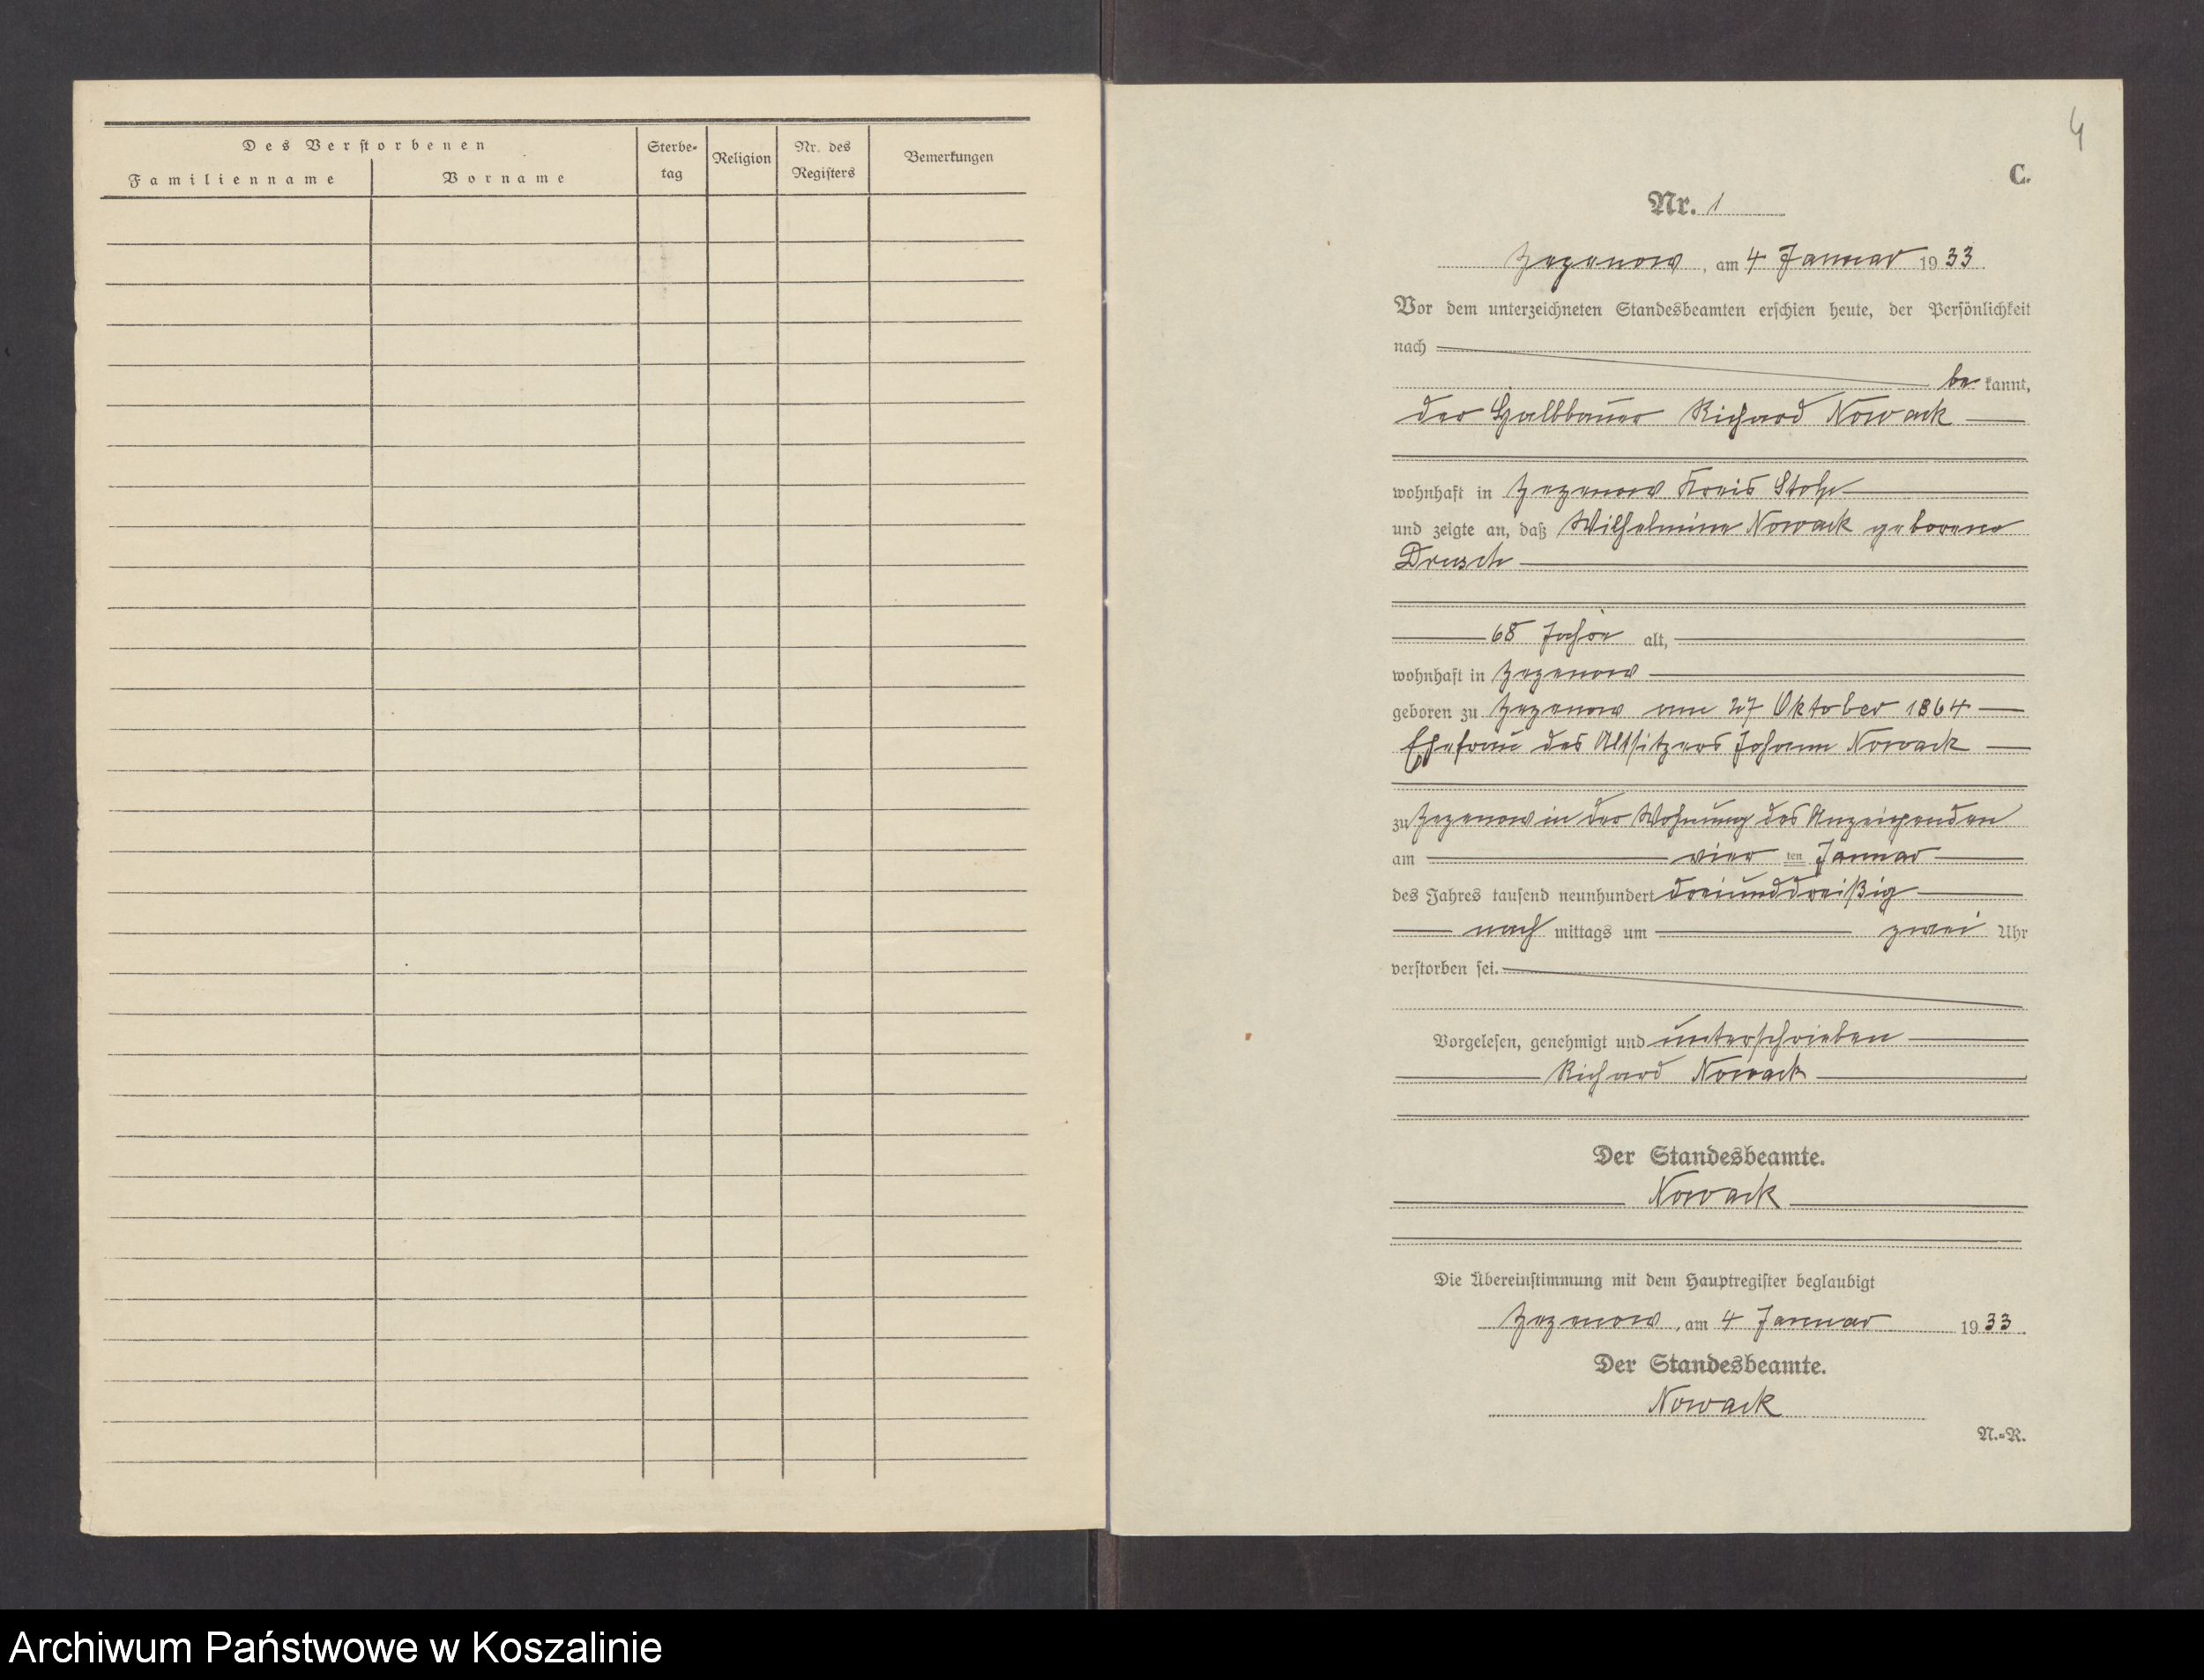 Des Verstorbenen
Familienname
Vorname
Sterbe-
tag
Religion
Nr. des
Registers
Bemerkungen
4
C.
Nr. 1
Zezenow, am 4 Januar 1933
Vor dem unterzeichneten Standesbeamten erschien heute, der Persönlichkeit
nach
be kannt,
der Halbbauer Richard Nowack
wohnhaft in Zezenow Kreis Stolp
und zeigte an, daß Wilhelmine Nowack geborene
Drusch
68 Jahre alt,
wohnhaft in Zezenow
geboren zu Zezenow am 27 Oktober 1864
Ehefrau des Altsitzers Johann Nowack
zu Zezenow in der Wohnung des Anzeigenden
am vier ten Januar
des Jahres tausend neunhundert dreiunddreißig
nach mittags um zwei Uhr
verstorben sei.
Vorgelesen, genehmigt und unterschrieben
Richard Nowack
Der Standesbeamte.
Nowack
Die Übereinstimmung mit dem Hauptregister beglaubigt
Zezenow, am 4 Januar 1933.
Der Standesbeamte.
Nowack
N.-R.
Archiwum Państwowe w Koszalinie